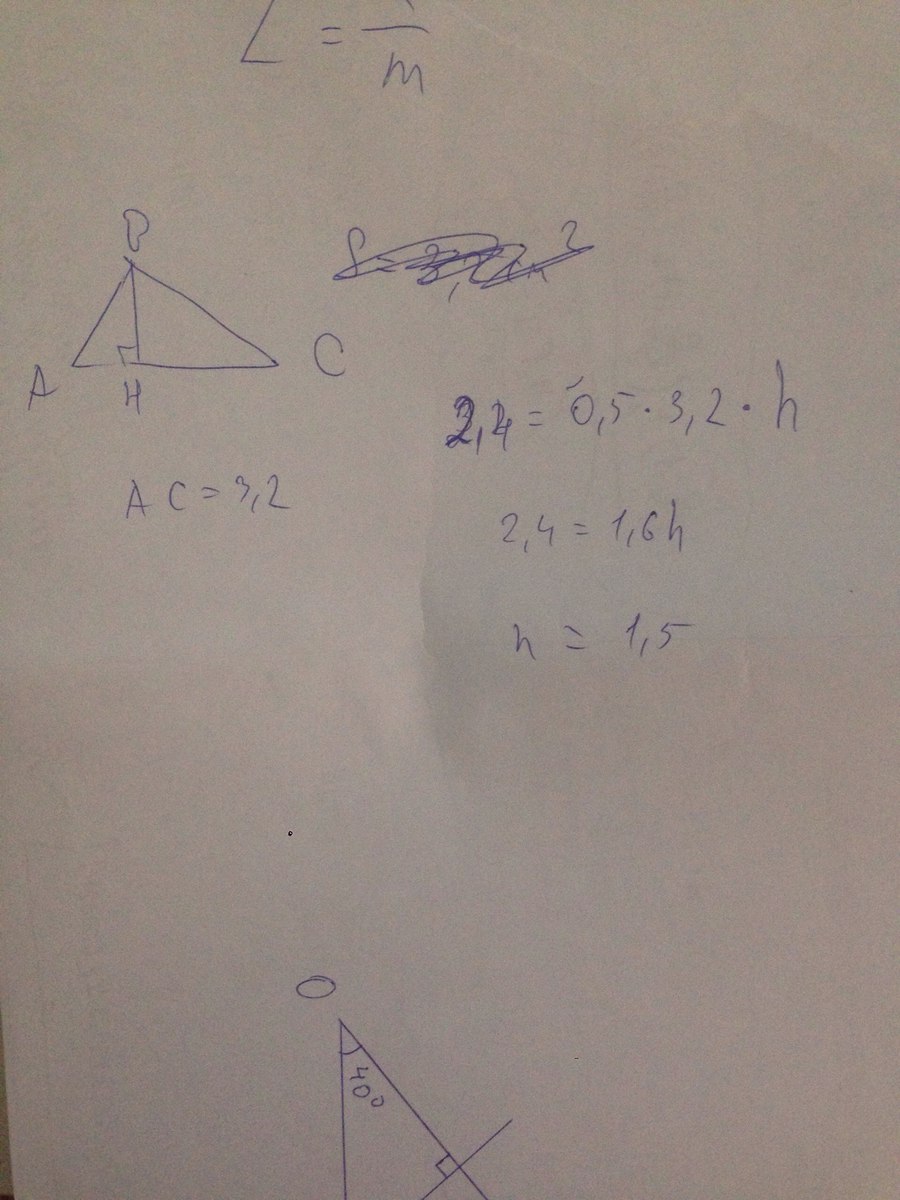 = m
B
A H C
AC = 3,2
2,4 = 0,5 · 3,2 · h
2,4 = 1,6h
h = 1,5
O
40°